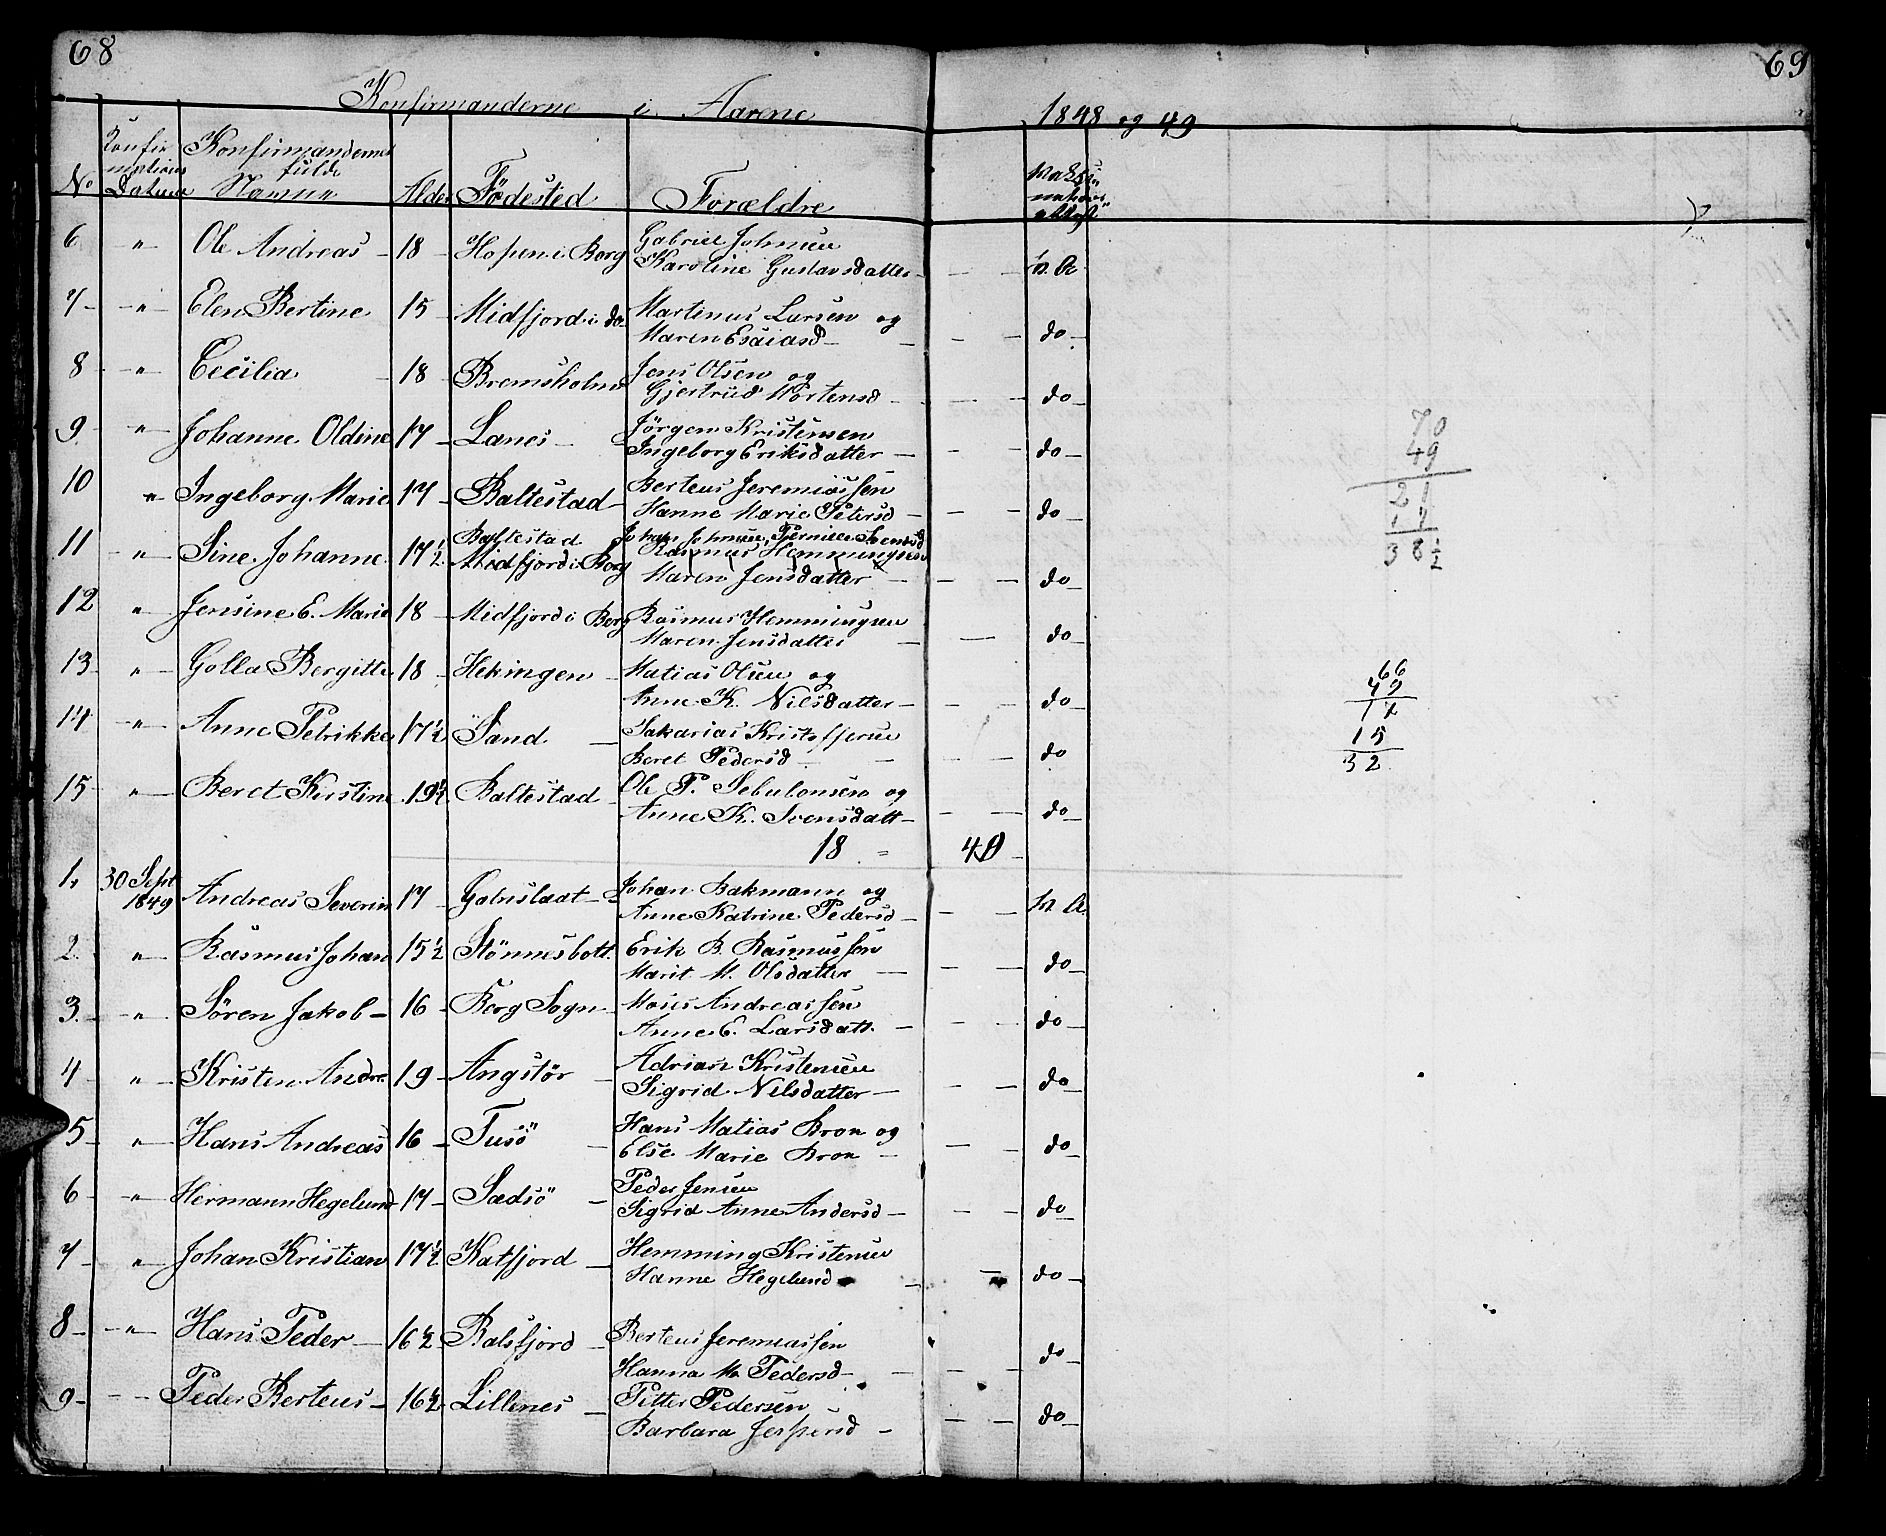 68
69
Konfirmanderne i Aarene 1848 og 49
No
Konfir
mations
Datum
Konfirmandernes
fulde
Navne
Alder
Födested
Forældre
Vaksi
nations
attest
6 " Ole Andreas 18 Hopen i Borg Gabriel Johnsen
Karoline Gustavsdatter v. A
7 " Elen Bertine 15 Midfjord i do Martinus Larsen og
Maren Esaiasd do
8 " Cecilia 18 Bremsholm Jens Olsen og
Gjertrud Mortensd do
9 " Johanne Oldine 17 Lanes Jörgen Kristensen
Ingeborg Eriksdatter do
10 " Ingeborg Marie 17 Baltestad Berteus Jeremiassen
Hanne Marie Petersd do
11 " Sine Johanne 17½ Baltestad Johan Johnsen, Pernille Svensd
Midfjord i Borg Rasmus Hemmingsen
Maren Jensdatter do
12 " Jensine E. Marie 18 Midfjord i Borg Rasmus Hemmingsen
Maren Jensdatter do
13 " Golla Bergitte 18 Hekingen Matias Olsen og
Anne K. Nilsdatter do
14 " Anne Petrikke 17½ Sand Sakarias Kristoffersen
Beret Pedersd do
15 " Beret Kirstine 19½ Baltestad Ole P. Sebulonsen og
Anne K. Svensdatt do
18 49
1. 30 Sept
1849 Andreas Severin 17 Johan Bakmann og
Anne Katrine Pedersd v. A.
2. " Rasmus Johan 15½ Stönnesbott. Erik B. Rasmussen
Marit M. Olsdatter do
3. " Sören Jakob 16 Berg Sogn Mons Andreassen
Anne E. Larsdatt. do
4 " Kristen Andre. 19 Angstör Adrian Kristensen
Sigrid Nilsdatter do
5 " Hans Andreas 16 Tusö Hans Matias Bron og
Else Marie Bron do
6 " Hermann Hegelund 17 Sadsö Peder Jensen
Sigrid Anne Andersd do
7 " Johan Kristian 17½ Katfjord Hemming Kristensen
Hanne Hegelund do
8 " Hans Peder 16½ Balsfjord Berteus Jeremiassen
Hanna M. Pedersd do
9 Peder Berteus 16½ Lillenes Petter Pedersen
Barbara Jespersd do
70
49
21
17
38½
66
49
17
15
32